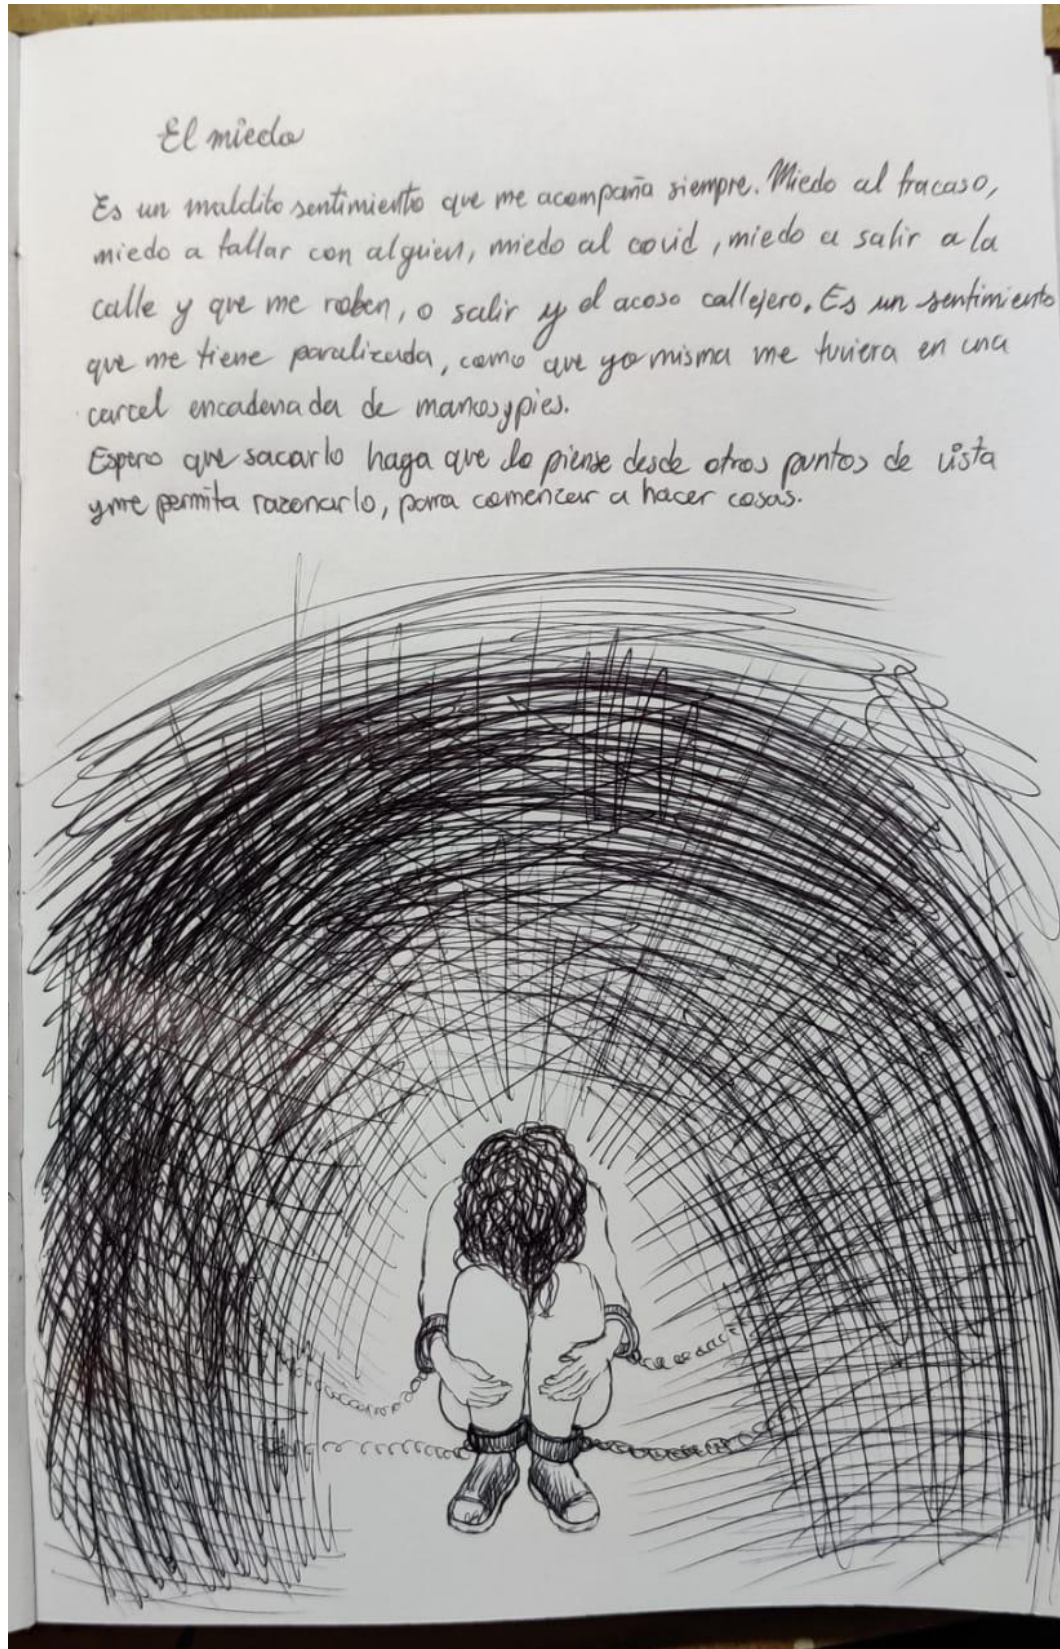 El miedo
Es un maldito sentimiento que me acompaña siempre. Miedo al fracaso,
miedo a fallar con alguien, miedo al covid, miedo a salir a la
calle y que me roben, o salir y el acoso callejero. Es un sentimiento
que me tiene paralizada, como que yo misma me tuviera en una
carcel encadenada de manos y pies.
Espero que sacarlo haga que lo piense desde otros puntos de vista
y me permita razonarlo, para comenzar a hacer cosas.